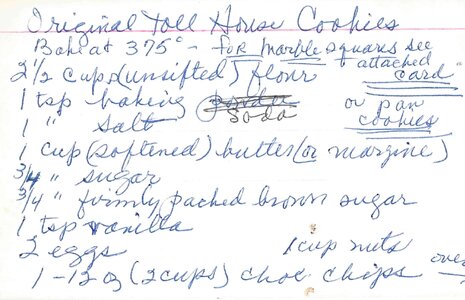 Original Toll House Cookies
Bake at 375° - for Marble Squares see attached card
2 1/2 cups (unsifted) flour
1 tsp baking powder soda or pan cookies
1 " salt
1 cup (softened) butter (or margine)
3/4 " sugar
3/4 " firmly packed brown sugar
1 tsp vanilla
2 eggs 1 cup nuts
1 - 12 oz (2 cups) choc chips over